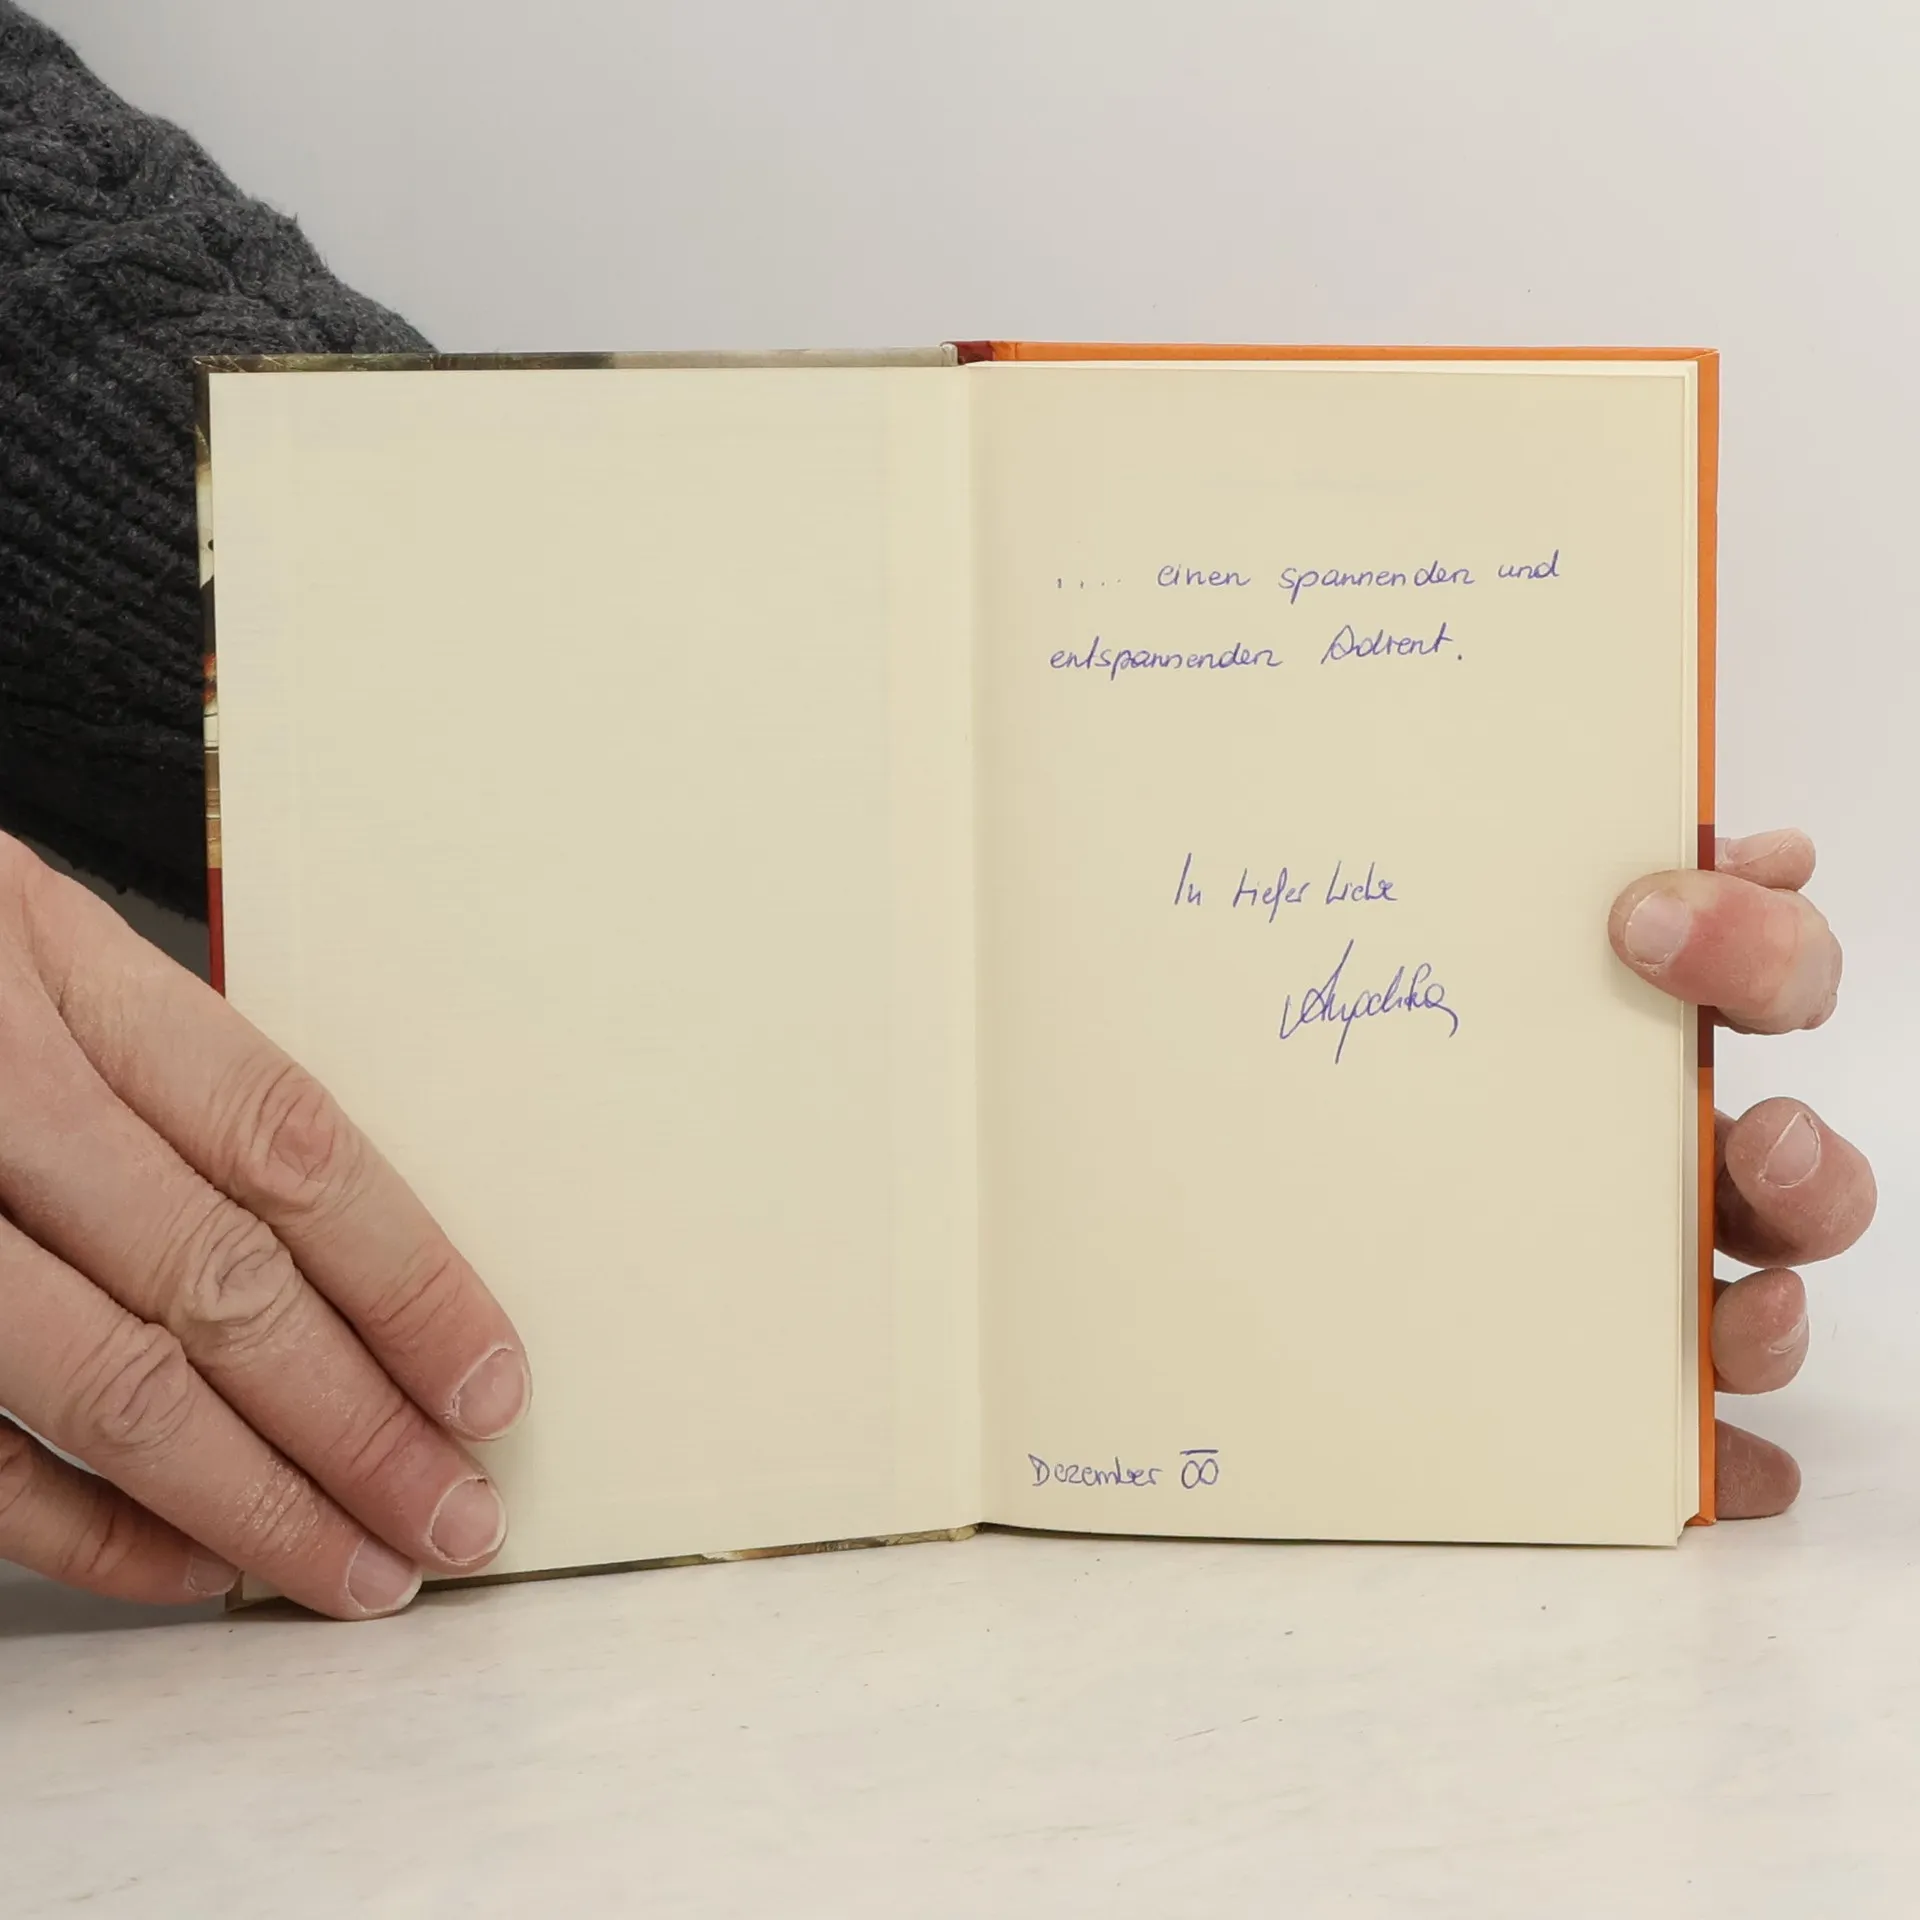 .... einen spannenden und
entspannenden Advent.
In tiefer Liebe
Dezember 00